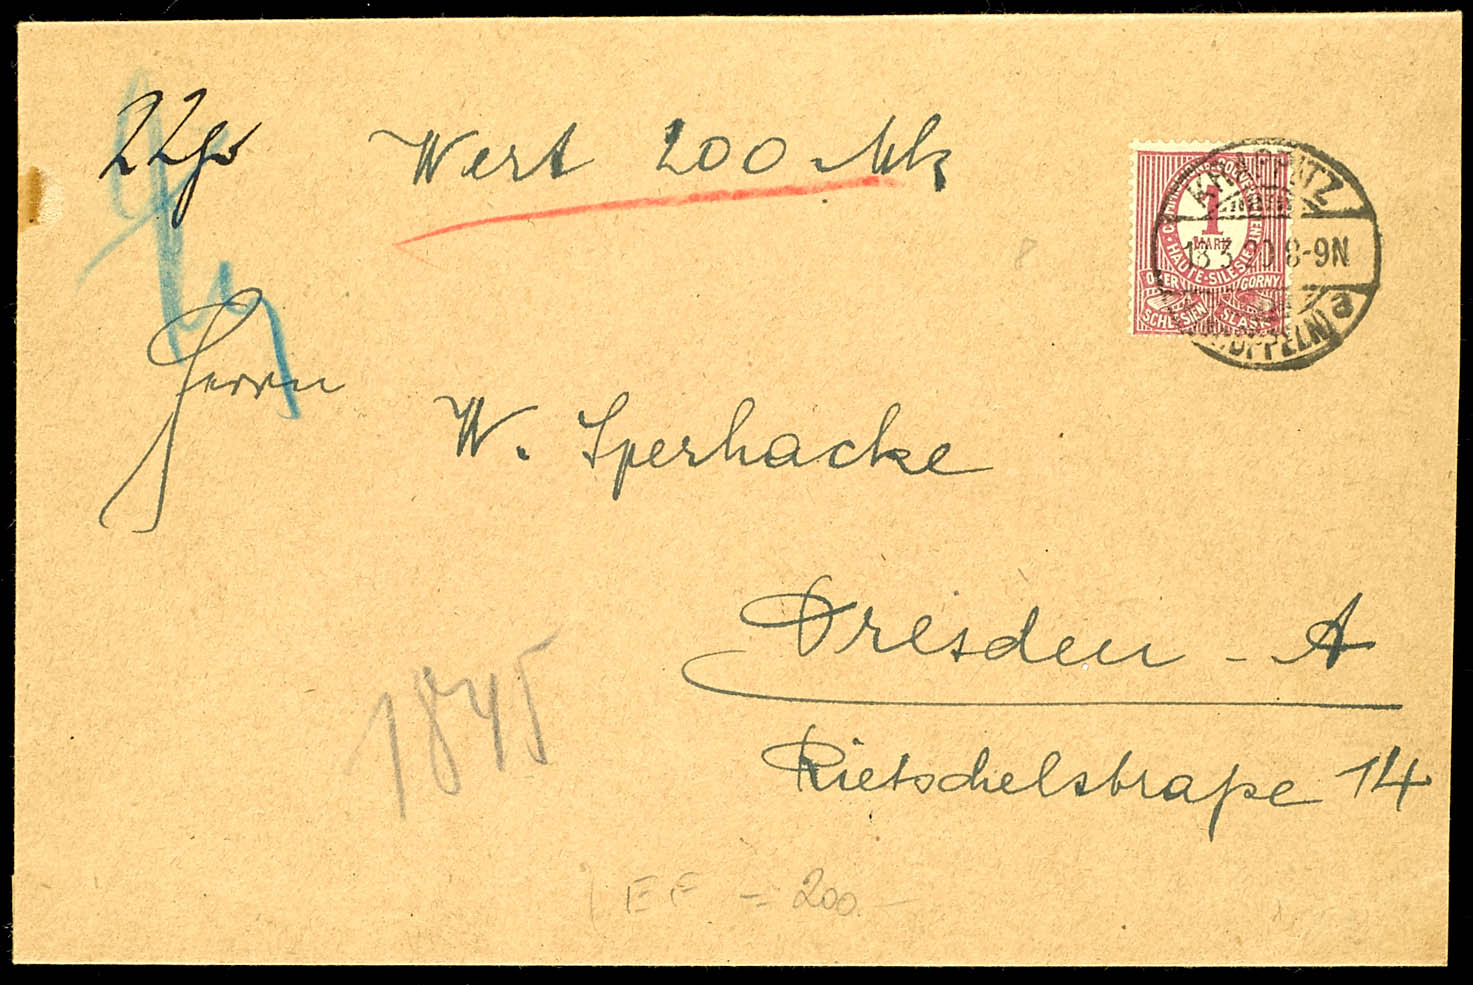 22 gr Wert 200 Mk
COMMISSION DE GOUVERNEMENT
HAUTE-SILESIE
1
MARK
OBER SCHLESIEN
GORNY SLASK
KRAPPITZ
13.3.20 8-9N
(OPPELN) a
Herrn
W. Sperhacke
Dresden - A
Rietschelstraße 14
1845
EF = 200.-